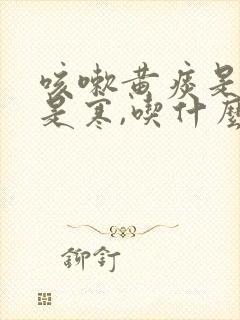 咳嗽黄痰是
是寒,喫什麼
鉚釘